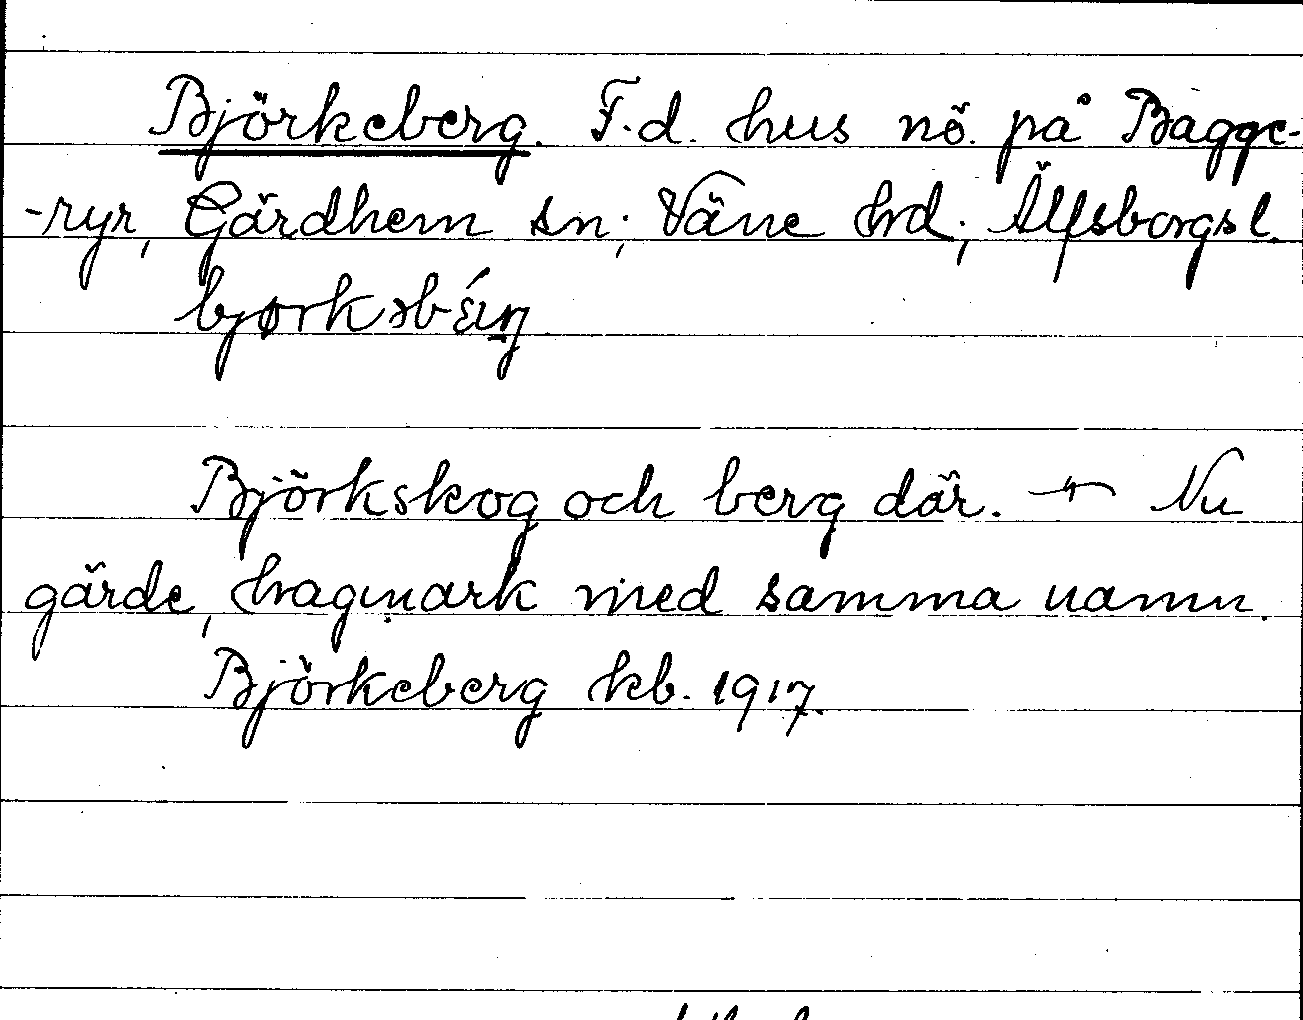 Björkeberg. F.d. hus nö. på Bagge-
-ryr, Gärdhem sn; Väne hd; Älfsborgs l.
Björkskog och berg där. Nu
gärde, hagmark med samma namn.
Björkeberg kb. 1917.